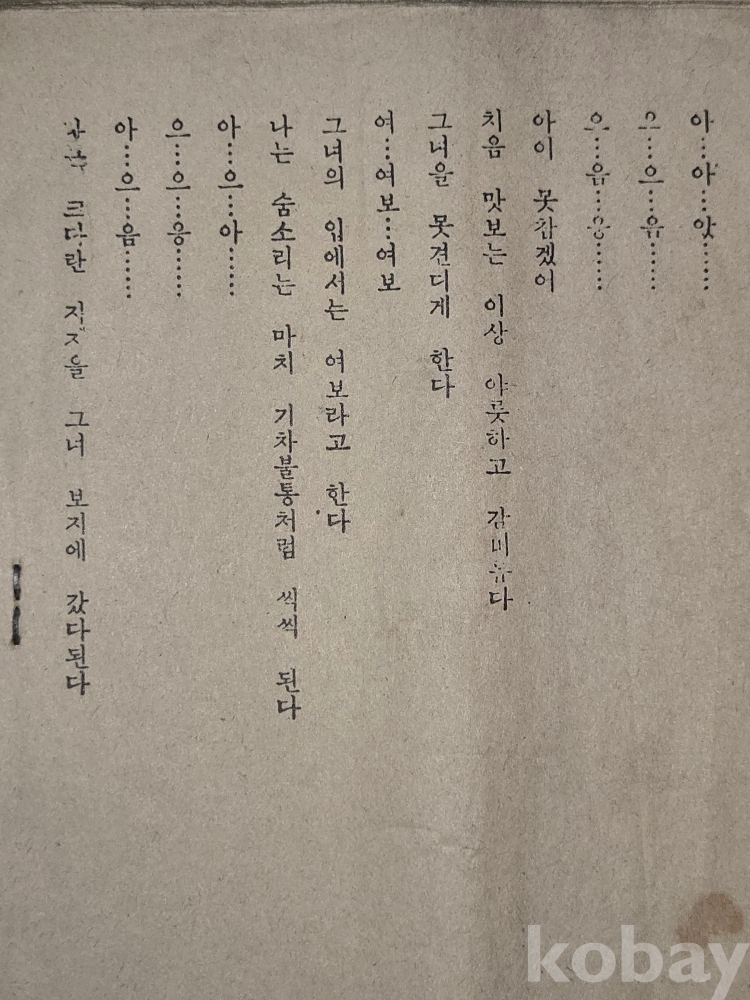 아…아…앗……
으…으…유……
으…음…응……
아이 못참겠이
처음 맛보는 이상 야릇하고 감미롭다
그녀을 못견디게 한다
여…여보…여보
그녀의 입에서는 여보라고 한다
나는 숨소리는 마치 기차불통처럼 씩씩 된다
아…으…아……
으…으…응……
아…으…음……
크다란 그녀 보지에 갔다된다
kobay